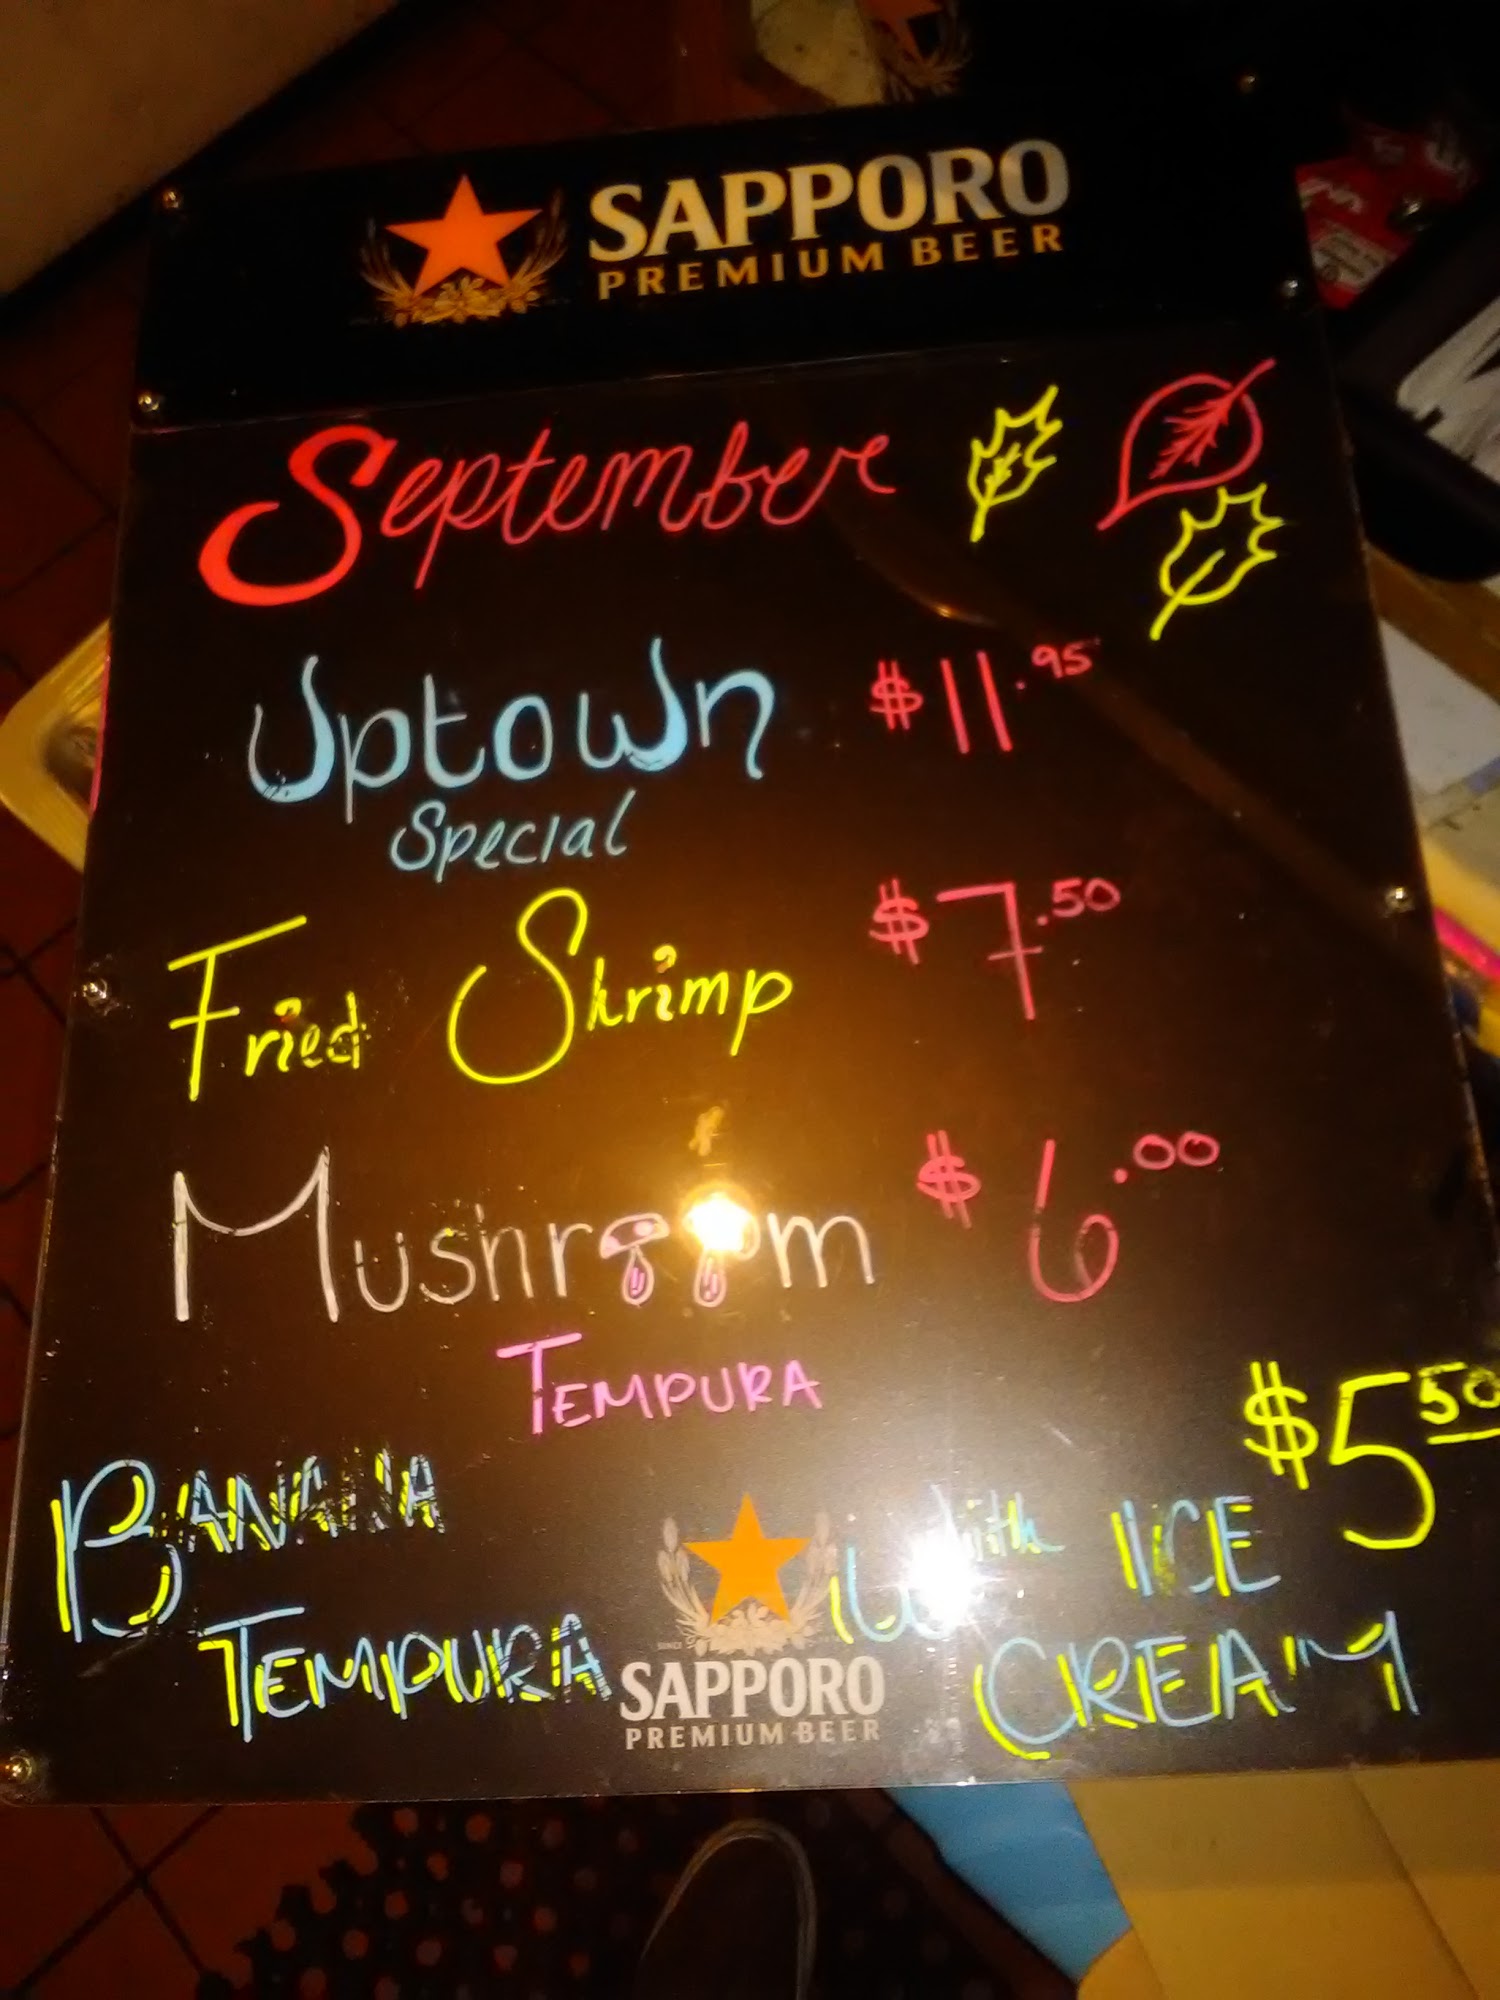 SAPPORO
PREMIUM BEER
September
Uptown $11.95
Special
Fried Shrimp $7.50
Mushroom $6.00
TEMPURA
$5 50
BANANA with ICE
TEMPURA CREAM
SINCE
SAPPORO
PREMIUM BEER